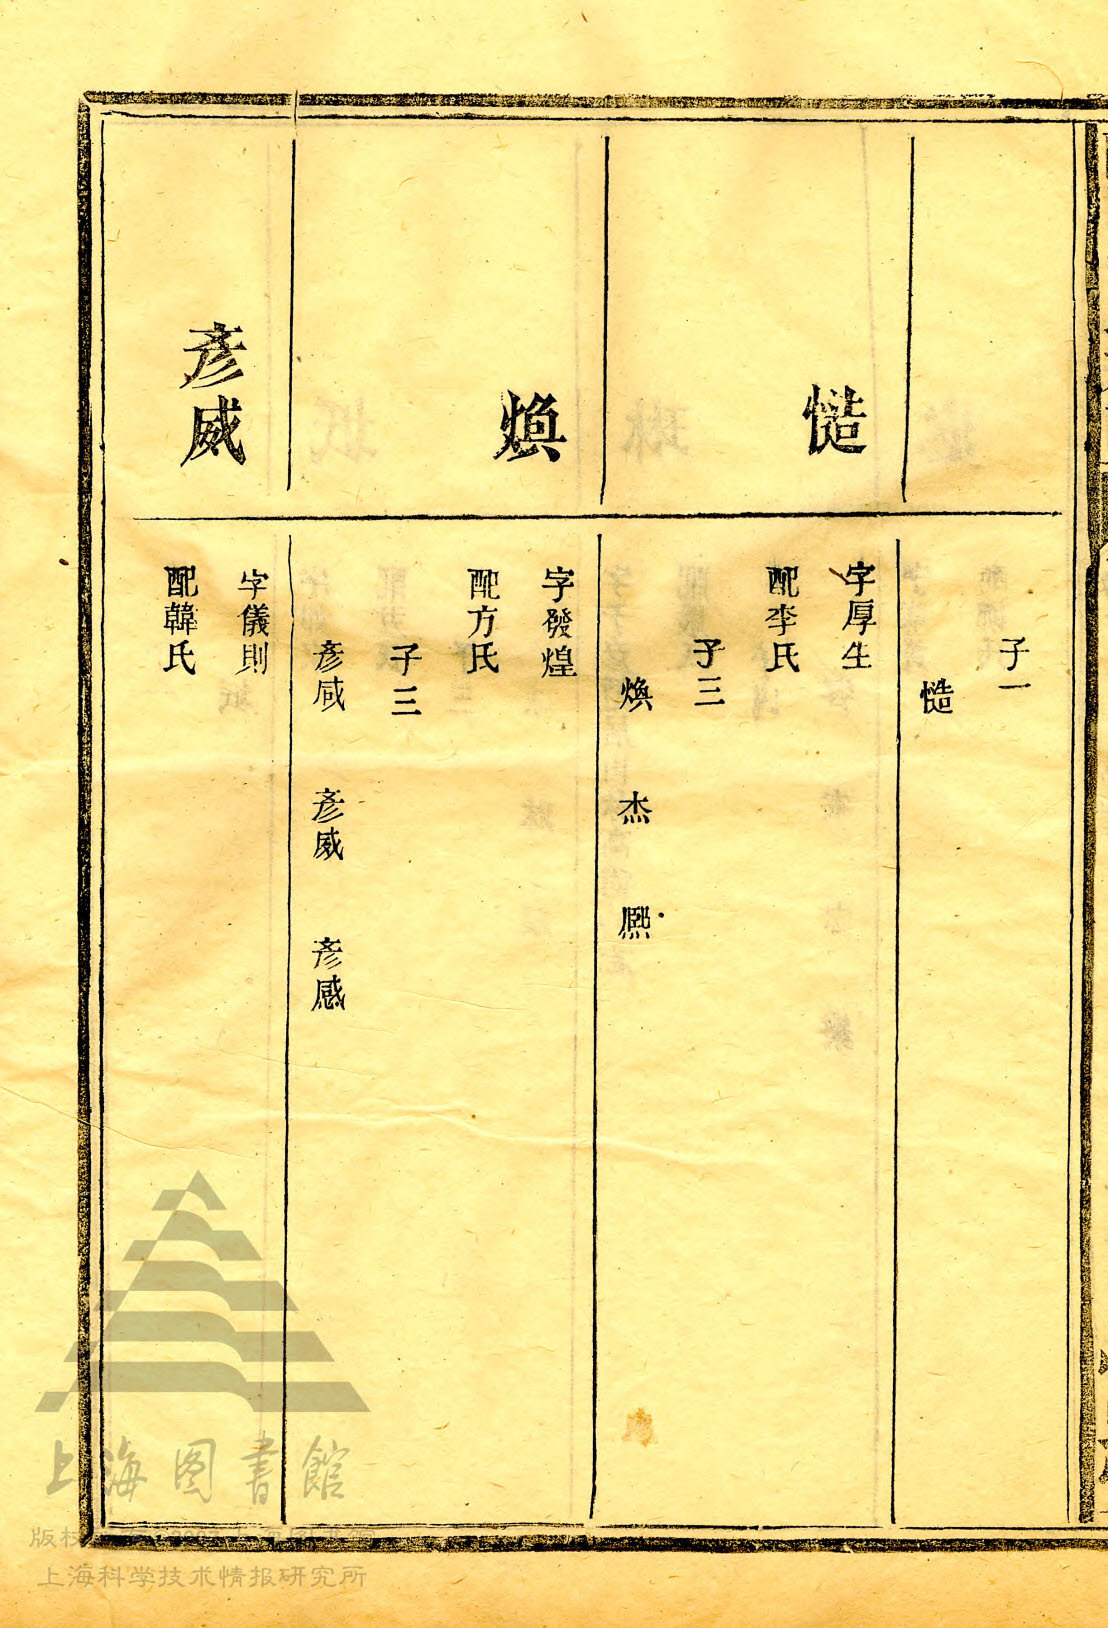 子一
慥
慥
字厚生
配李氏
子三
煥 杰 熙
煥
字發煌
配方氏
子三
彥咸 彥威 彥感
彥威
字儀則
配韓氏
上海图書館
上海科学技术情报研究所